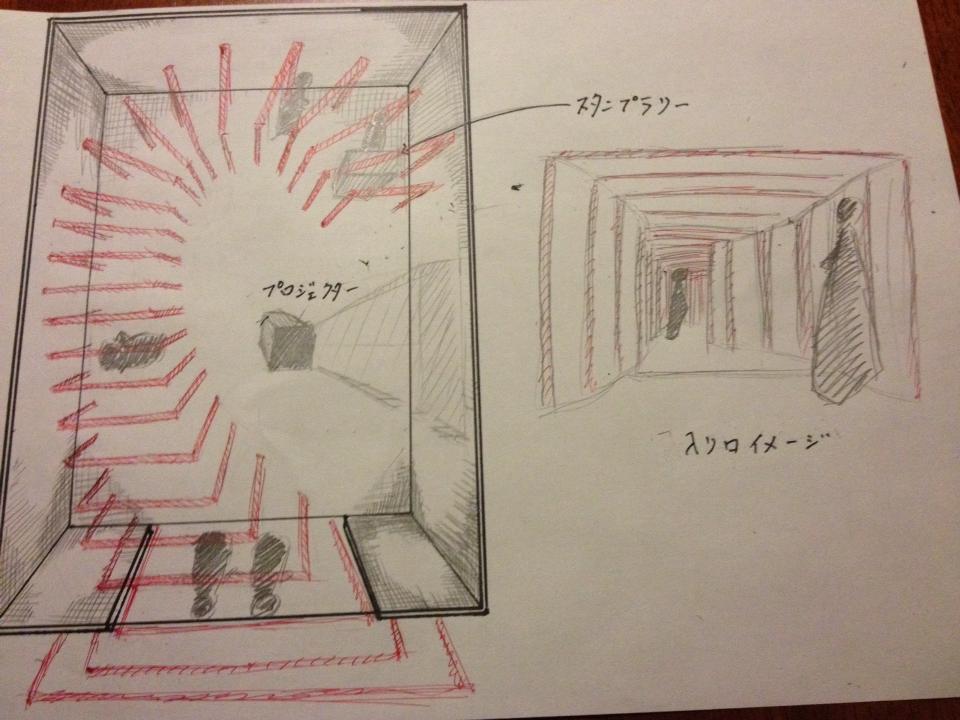 スタンプラリー
プロジェクター
入り口イメージ